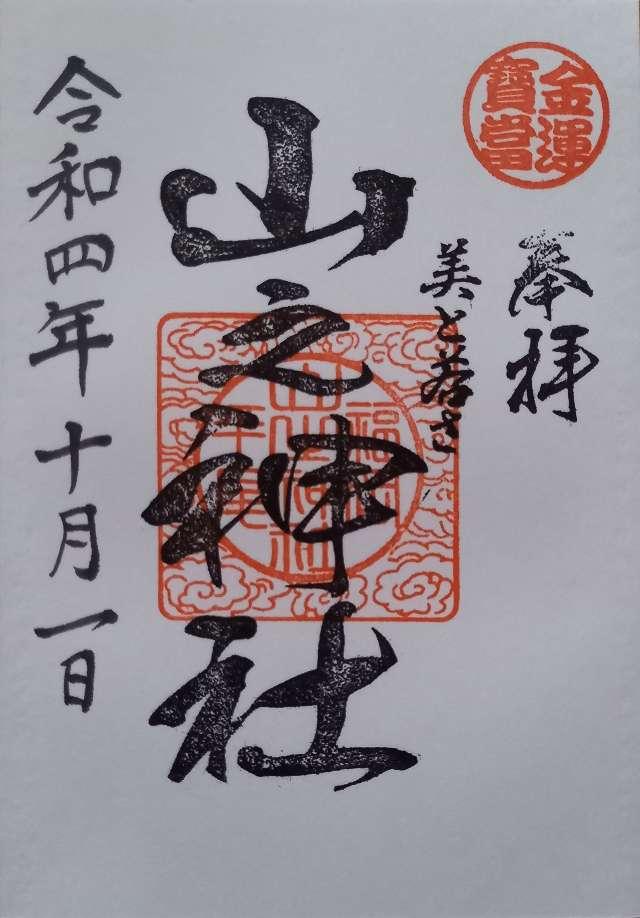 金運
寳當
奉拝
美と若さ
山之神社
令和四年十月一日